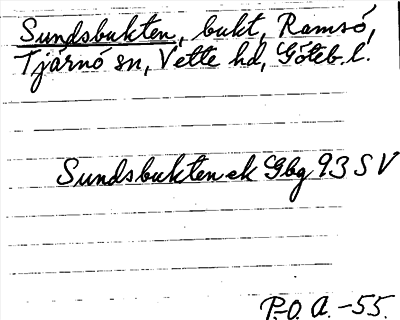 Sundsbukten, bukt, Ramsö,
Tjärnö sn, Vette hd, Göteb. l.
Sundsbukten ek Gbg 93 SV
P.O.A. -55.